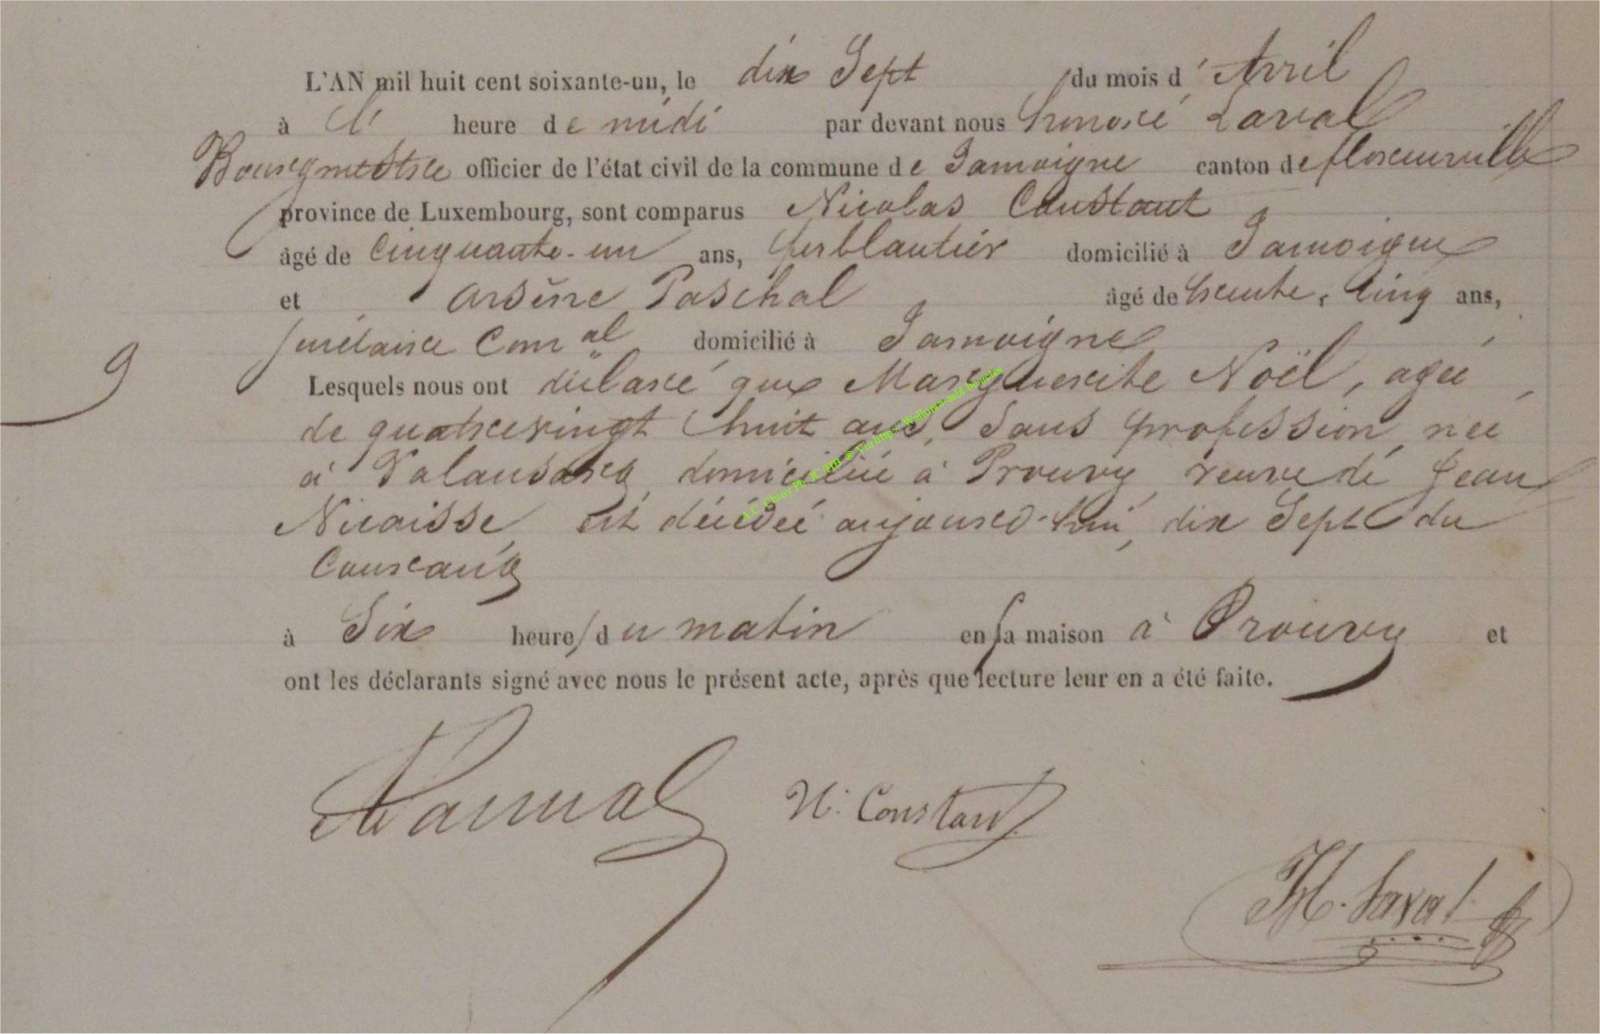 L'AN mil huit cent soixante-un, le dix Sept du mois d'Avril
à l' heure de midi par devant nous honoré Laval
Bourgmestre officier de l'état civil de la commune de Jamoigne canton de florenville
province de Luxembourg, sont comparus Nicolas Constant
âgé de Cinquante-un ans, ferblantier domicilié à Jamoigne
et arsène Paschal âgé de trente, Cinq ans,
secrétaire Com.al domicilié à Jamoigne
9
Lesquels nous ont déclaré que Marguerite Noël, agée
de quatrevingt huit ans, Sans profession née
à Valansart, domiciliée à Prouvy, veuve de Jean
Nicaisse, est décédée aujourd'hui, dix Sept du
Courant,
à Six heures du matin en sa maison à Prouvy et
ont les déclarants signé avec nous le présent acte, après que lecture leur en a été faite.
N. Constant
H. Laval